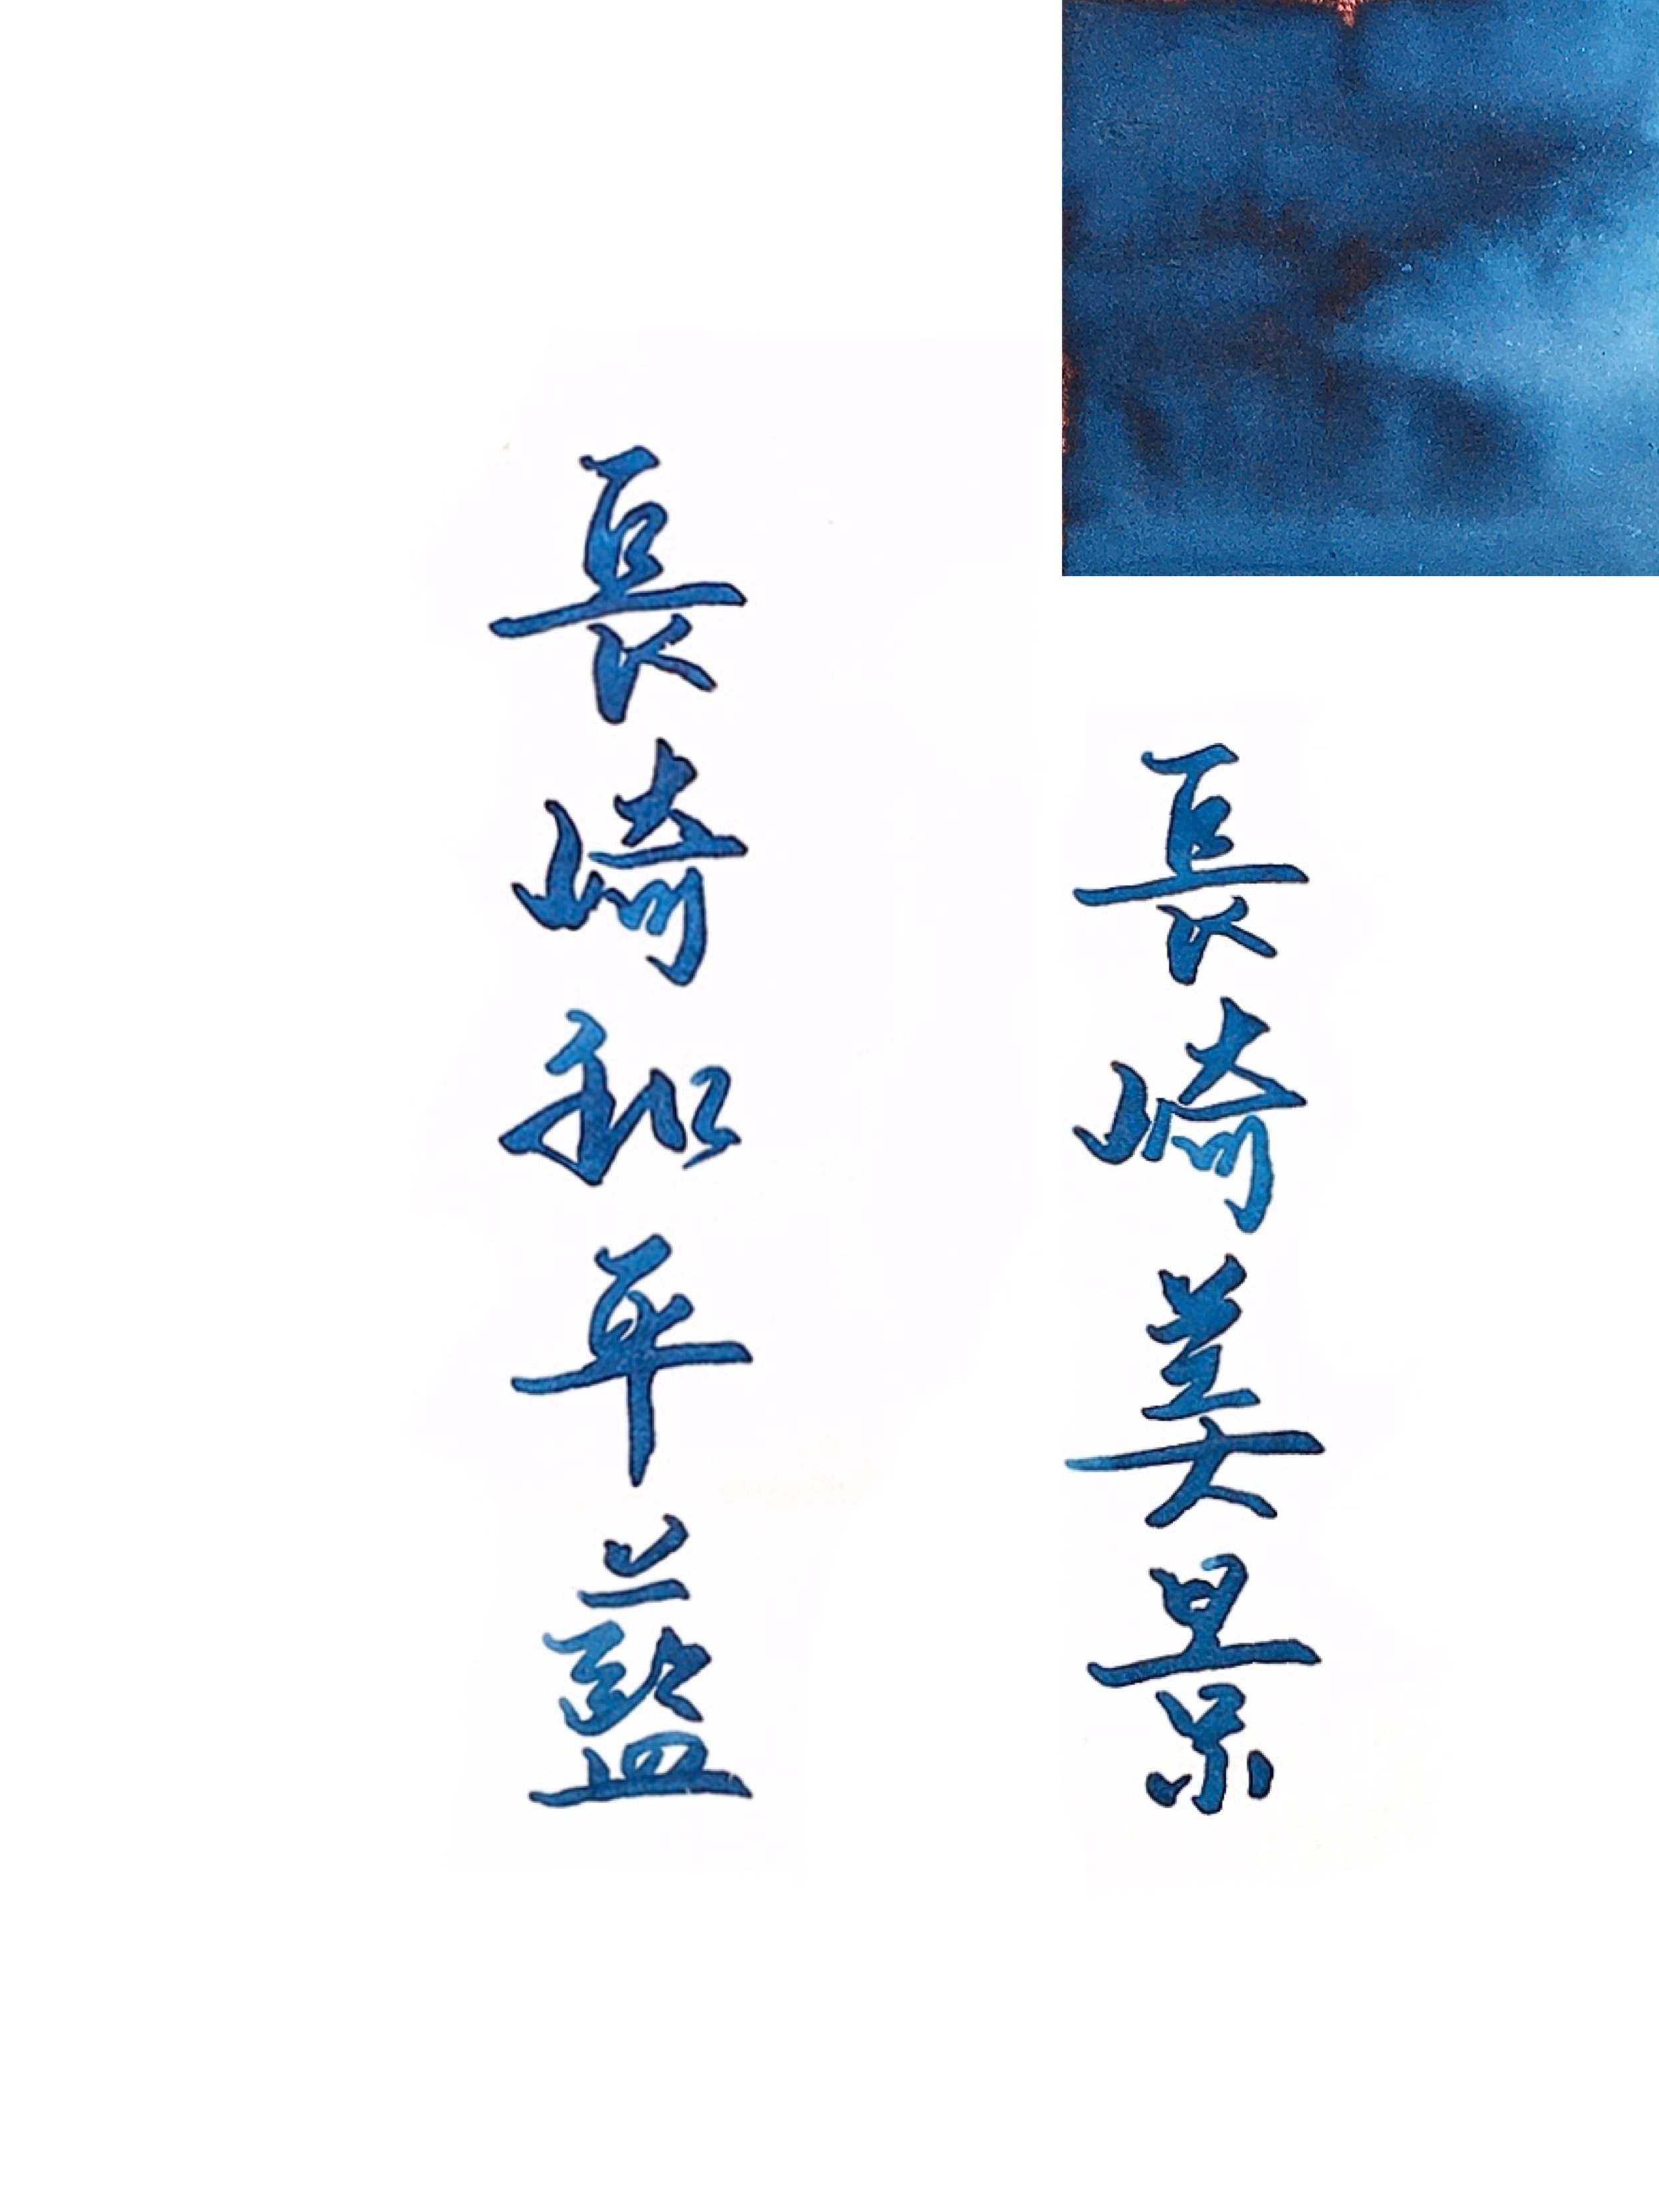 長崎美景
長崎和平藍